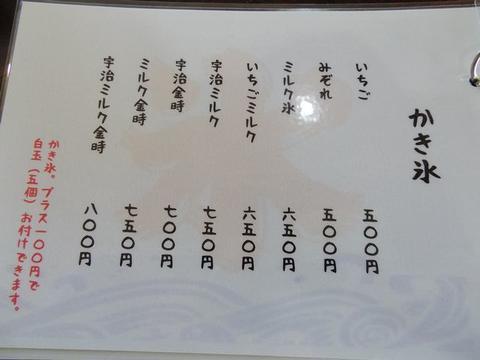 かき氷
いちご 五〇〇円
みぞれ 五〇〇円
ミルク氷 六五〇円
いちごミルク 六五〇円
宇治ミルク 七五〇円
宇治金時 七〇〇円
ミルク金時 七五〇円
宇治ミルク金時 八〇〇円
かき氷。プラス一〇〇円で
白玉（五個）お付けできます。